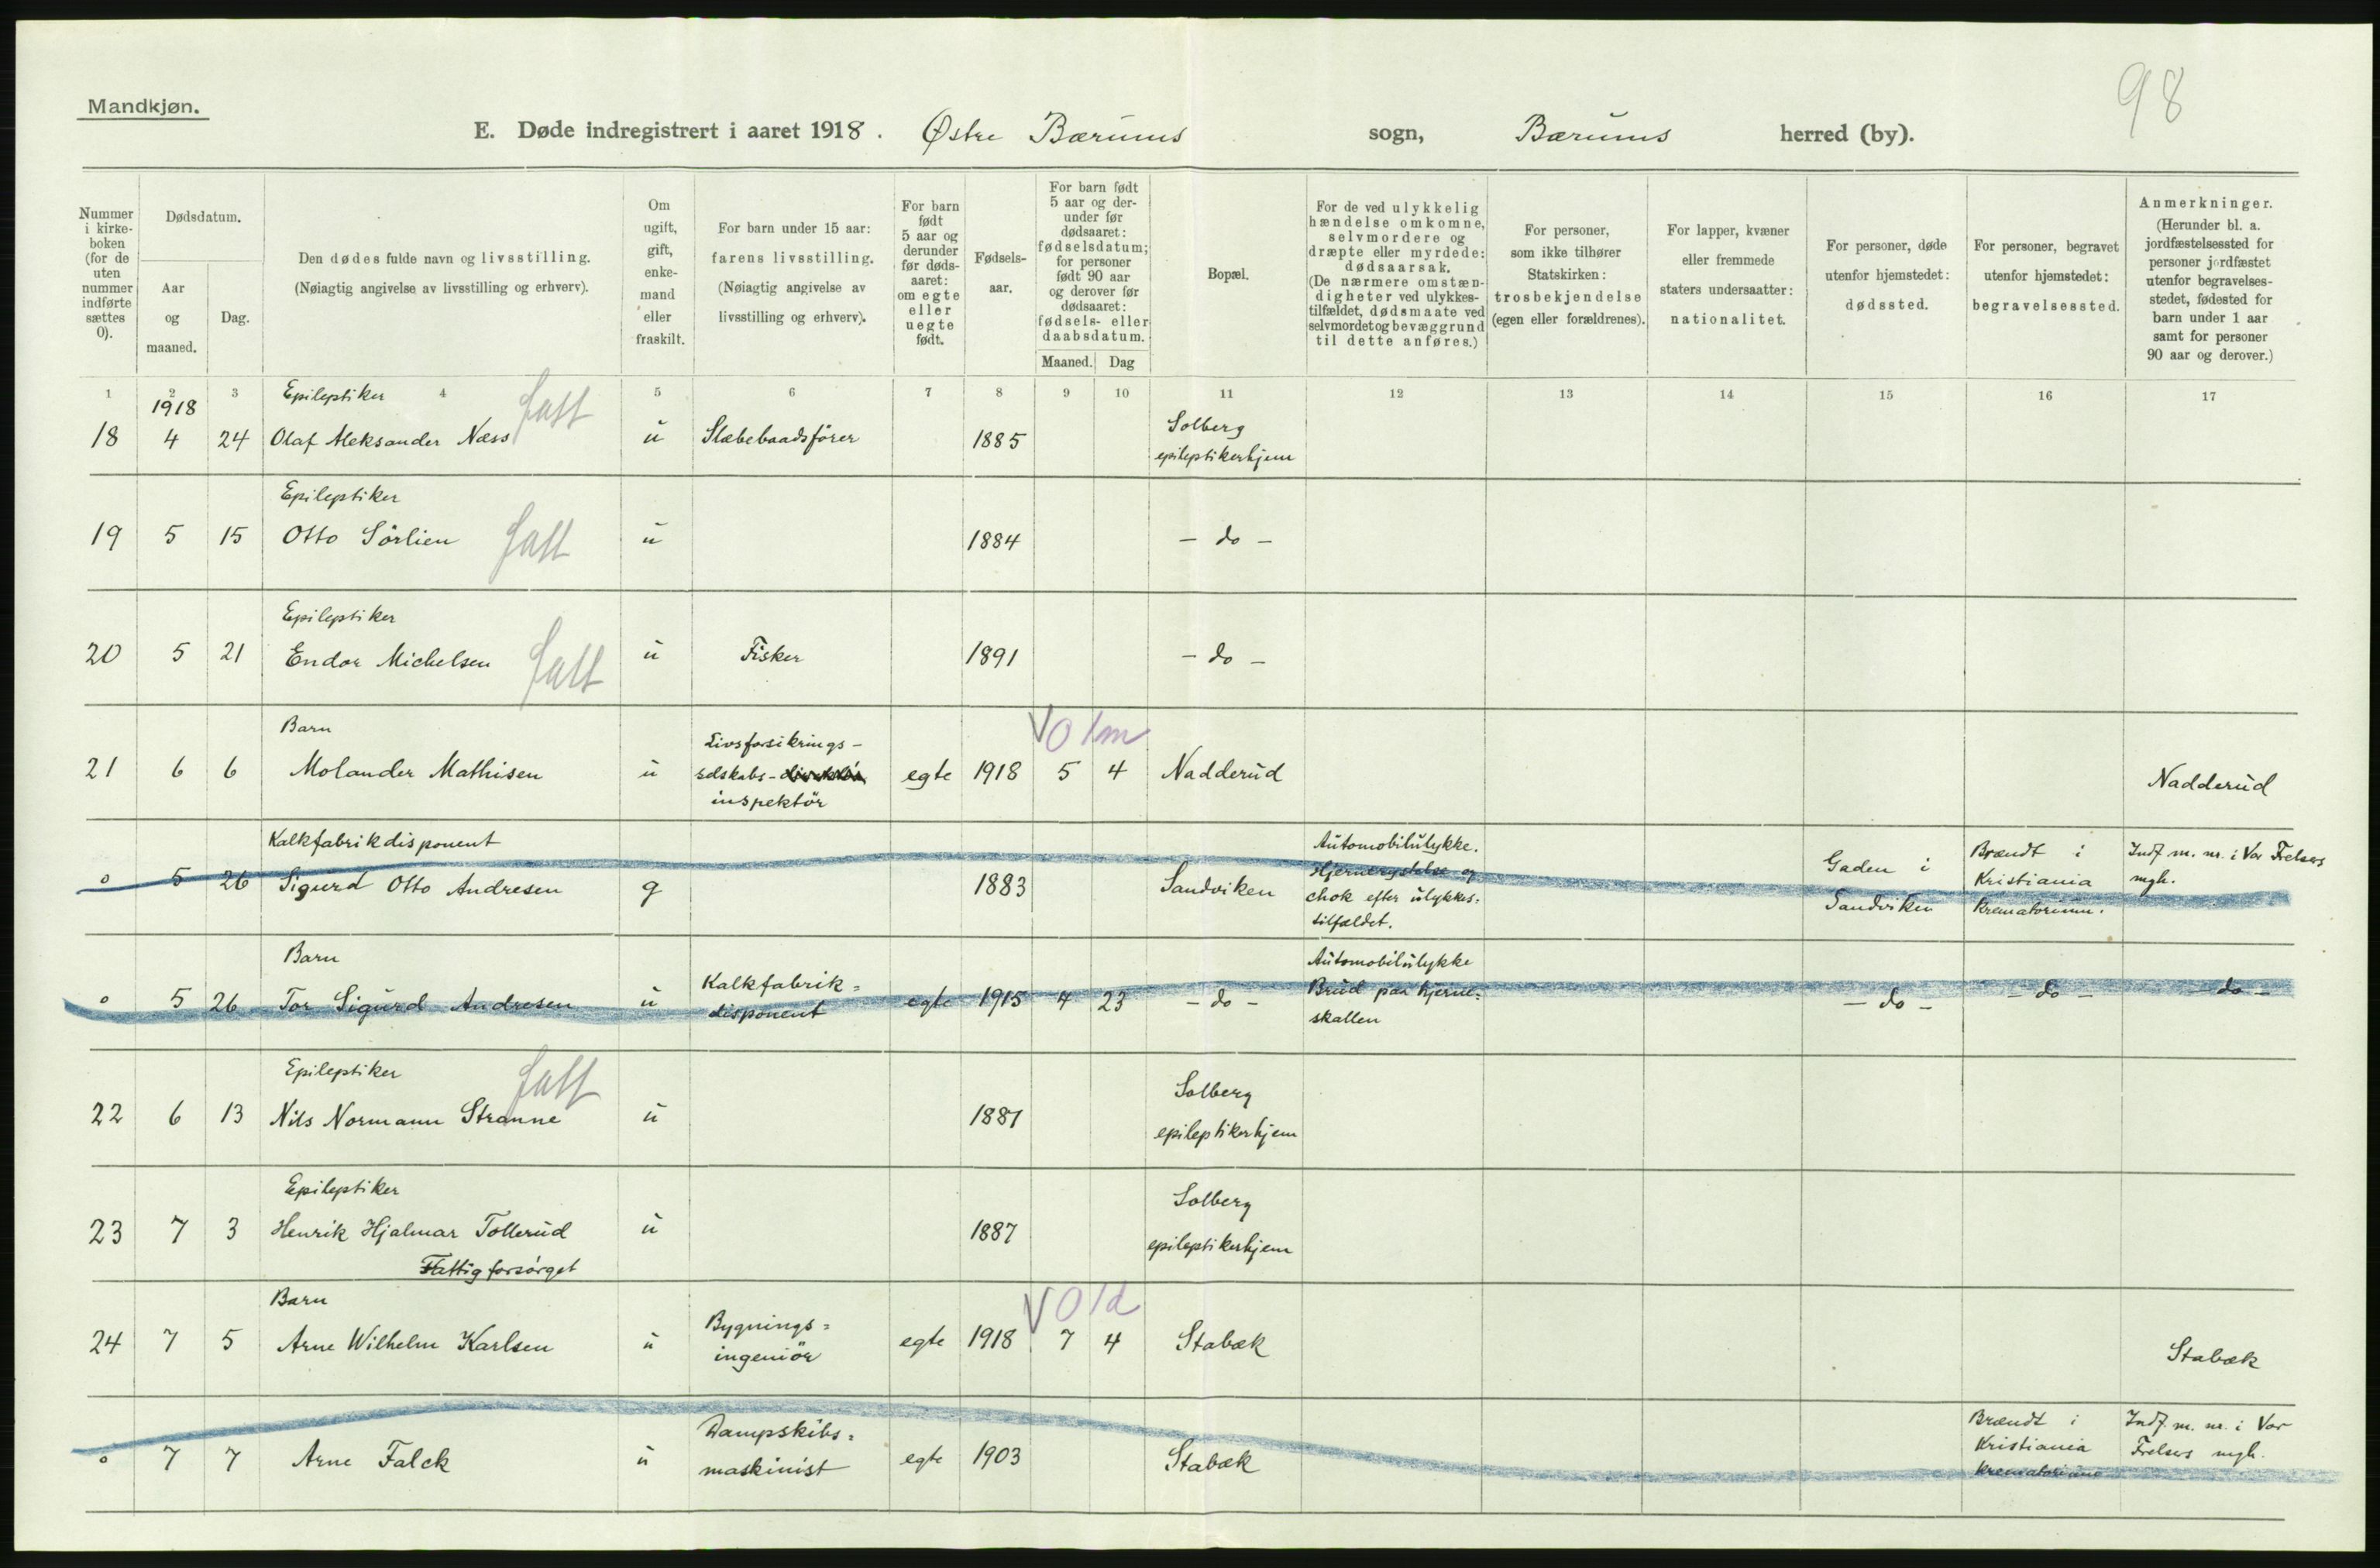 98
Mandkjøn.
E. Døde indregistrert i aaret 1918. Østre Bærums sogn, Bærums herred (by).
Nummer i kirke-boken (for de uten nummer indførte sættes 0).
Dødsdatum.
Aar og maaned.
Dag.
Den dødes fulde navn og livsstilling.
(Nøiagtig angivelse av livsstilling og erhverv).
Om ugift, gift, enke-mand eller fraskilt.
For barn under 15 aar: farens livsstilling.
(Nøiagtig angivelse av livsstilling og erhverv).
For barn født 5 aar og derunder før døds-aaret: om egte eller uegte født.
Fødsels-aar.
For barn født 5 aar og der-under før dødsaaret: fødselsdatum; for personer født 90 aar og derover før dødsaaret: fødsels- eller daabsdatum.
Maaned. Dag
Bopæl.
For de ved ulykkelig hændelse omkomne, selvmordere og dræpte eller myrdede: dødsaarsak.
(De nærmere omstæn-digheter ved ulykkes-tilfældet, dødsmaate ved selvmordet og bevæggrund til dette anføres.)
For personer, som ikke tilhører Statskirken: trosbekjendelse (egen eller forældrenes).
For lapper, kvæner eller fremmede staters undersaatter: nationalitet.
For personer, døde utenfor hjemstedet: dødssted.
For personer, begravet utenfor hjemstedet: begravelsessted.
Anmerkninger.
(Herunder bl. a. jordfæstelsessted for personer jordfæstet utenfor begravelses-stedet, fødested for barn under 1 aar samt for personer 90 aar og derover.)
1 2 3 4 5 6 7 8 9 10 11 12 13 14 15 16 17
1918 Epileptiker
18 4 24 Olaf Aleksander Næss u Slæbebaadsfører 1885 Solberg epileptikerhjem
Epileptiker
19 5 15 Otto Sörlien u 1884 - do -
Epileptiker
20 5 21 Endor Michelsen u Fisker 1891 - do -
Barn V 0 1m
21 6 6 Molander Mathisen u Livsforsikrings-selskabs-direktör inspektör egte 1918 5 4 Nadderud Nadderud
Kalkfabrikdisponent
0 5 26 Sigurd Otto Andresen g 1883 Sandviken Automobilulykke. Hjernerystelse og chok efter ulykkes=tilfældet. Gaden i Sandviken Brændt i Kristiania Krematorium. Indf m. nr. i Vor Frelsers mgh.
Barn
0 5 26 Tor Sigurd Andresen u Kalkfabrik=disponent egte 1915 4 23 - do - Automobilulykke Brud paa hjerne=skallen - do - - do - - do -
Epileptiker
22 6 13 Nils Normann Stranne u 1881 Solberg epileptikerhjem
Epileptiker
23 7 3 Henrik Hjalmar Tollerud u 1887 Solberg epileptikerhjem
Fattigforsörget
Barn V 0 1d
24 7 5 Arne Wilhelm Karlsen u Bygnings=ingeniör egte 1918 7 4 Stabæk Stabæk
0 7 7 Arne Falck u Dampskibs=maskinist egte 1903 Stabæk Brændt i Kristiania Krematorium Indf. m. nr. i Vor Frelsers mgh.